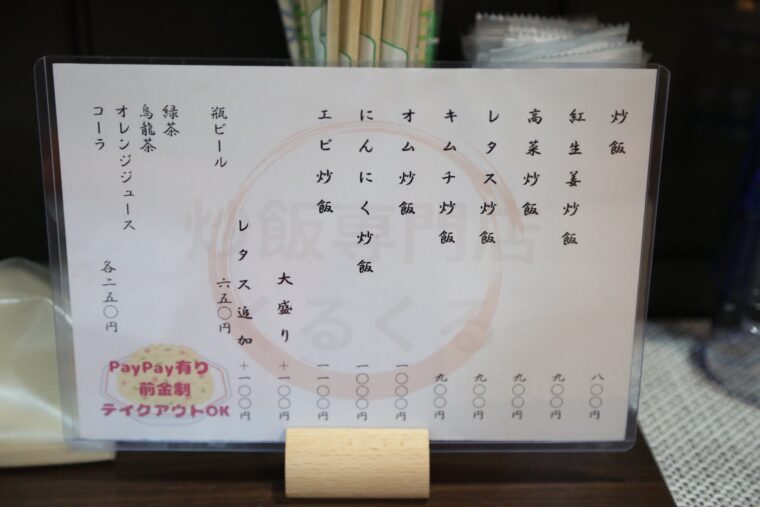 炒飯 八〇〇円
紅生姜炒飯 九〇〇円
高菜炒飯 九〇〇円
レタス炒飯 九〇〇円
キムチ炒飯 九〇〇円
オム炒飯 一〇〇〇円
にんにく炒飯 一〇〇〇円
エビ炒飯 一一〇〇円
大盛り +一〇〇円
レタス追加 +一〇〇円
瓶ビール 六五〇円
緑茶
烏龍茶
オレンジジュース
コーラ 各二五〇円
炒飯専門店
くるくる
PayPay有り
前金制
テイクアウトOK